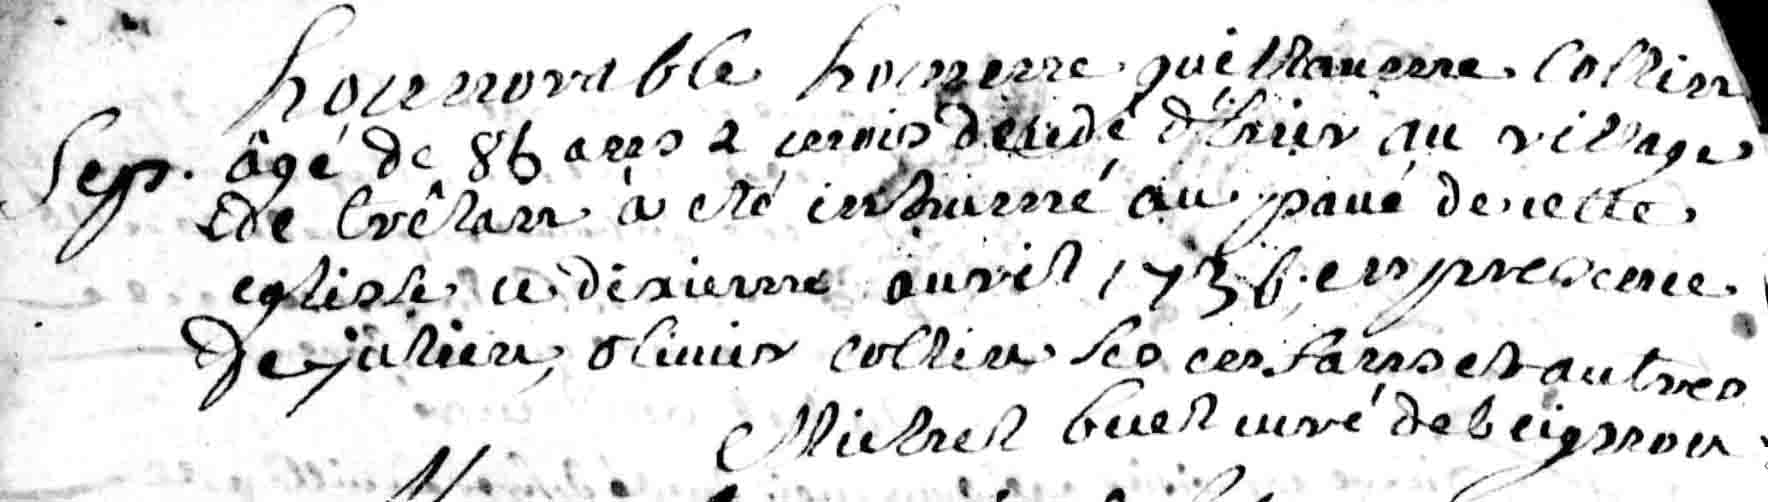 honnorable homme guillaume Collin
Sep. âgé de 86 ans 2 mois decedé d'hier au village
de trêlan à eté inhumé au pavé de cette
eglise ce dixieme auvril 1736, en presence
de julien, olivier collin ses enfans et autres
Michel buet curé de beignon